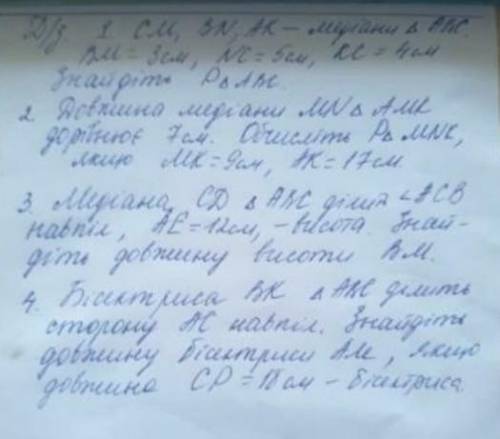 Д/з 1. CM, BN, AK – медіани Δ ABC.
BM = 3см, NC = 5см, KC = 4см
Знайдіть P Δ ABC.
2. Довжина медіани MN Δ AMK
дорівнює 7см. Обчисліть P Δ MNK,
якщо MK = 9см, AK = 17см
3. Медіана CD Δ ABC ділить ∠ACB
навпіл, AE = 12см, – висота. Знай-
діть довжину висоти BM.
4. Бісектриса BK Δ ABC ділить
сторону AC навпіл. Знайдіть
довжину бісектриси AM, якщо
довжина CP = 18см – бісектриса